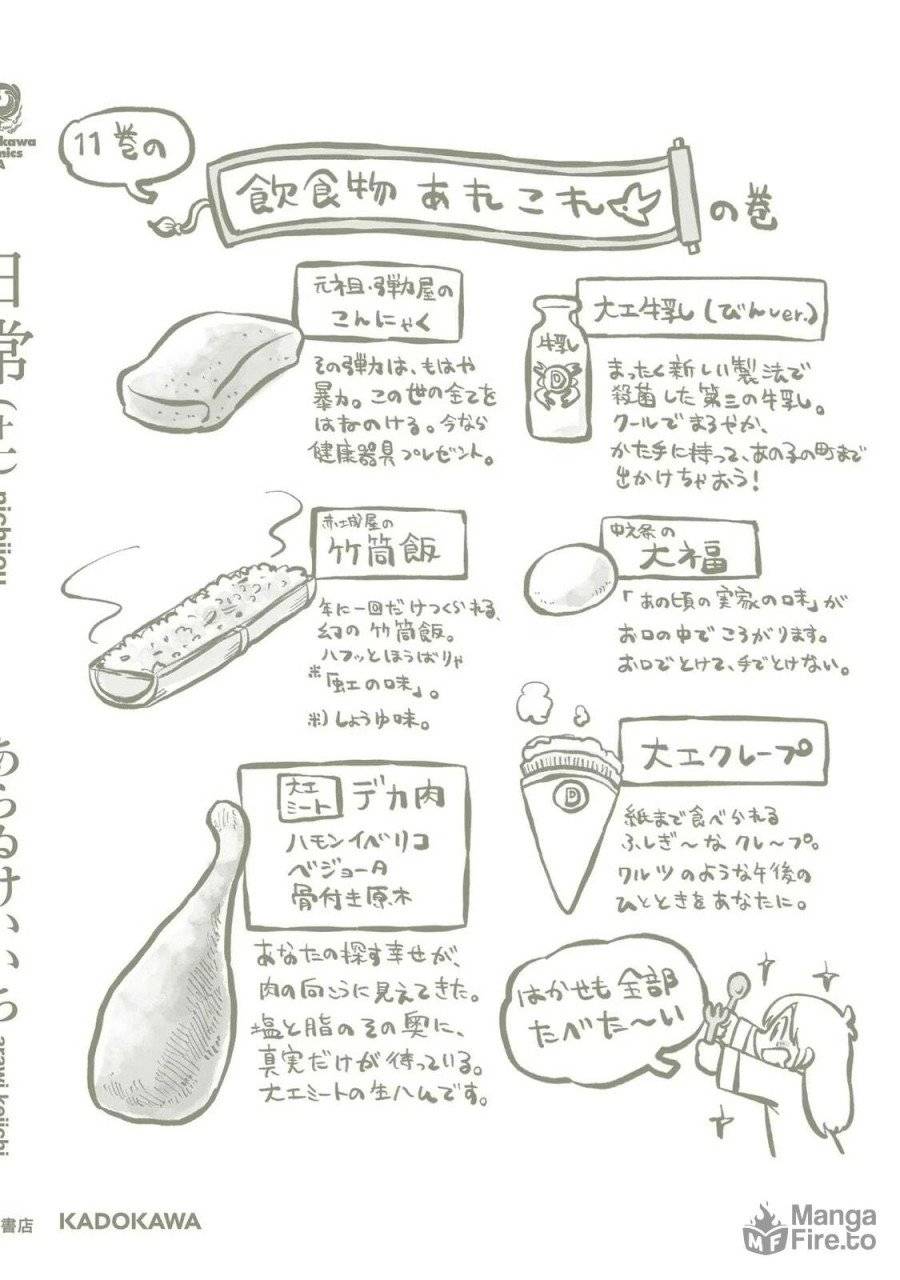 11巻の
飲食物 あれこれ
の巻
元祖・弾力屋の
こんにゃく
その弾力は、もはや
暴力。この世の全てを
はねのける。今なら
健康器具プレゼント。
大工牛乳(びんver.)
牛乳
D
まったく新しい製法で
殺菌した第三の牛乳。
クールでまろやか、
かた手に持って、あの子の町まで
出かけちゃおう!
赤城屋の
竹筒飯
年に一回だけつくられる、
幻の竹筒飯。
ハフッとほうばりゃ
※「虹の味」。
※)しょうゆ味。
中之条の
大福
「あの頃の実家の味」が
お口の中でころがります。
お口でとけて、手でとけない。
大工
ミート
デカ肉
ハモンイベリコ
ベジョーA
骨付き原木
あなたの探す幸せが、
肉の向こうに見えてきた。
塩と脂のその奥に、
真実だけが待っている。
大工ミートの生ハムです。
大工クレープ
D
紙まで食べられる
ふしぎ〜なクレ〜プ。
ワルツのような午後の
ひとときをあなたに。
はかせも全部
たべた〜い
日常
nichijou
あらゐけいいち
arawi keiichi
書店
KADOKAWA
Manga
Fire.to
MF